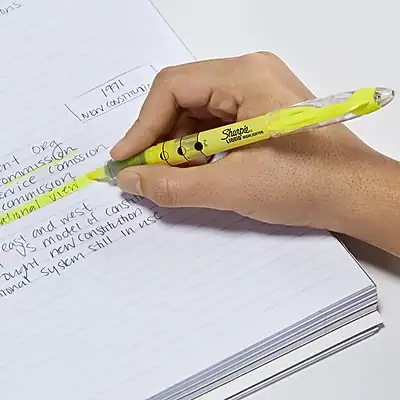 ons
1991
Non constituti
ent org
commission
ervice comission
commission
ational view
east and west
's model of consti
ought new constitution
tional system still in use
Sharpie
LIQUID HIGHLIGHTER